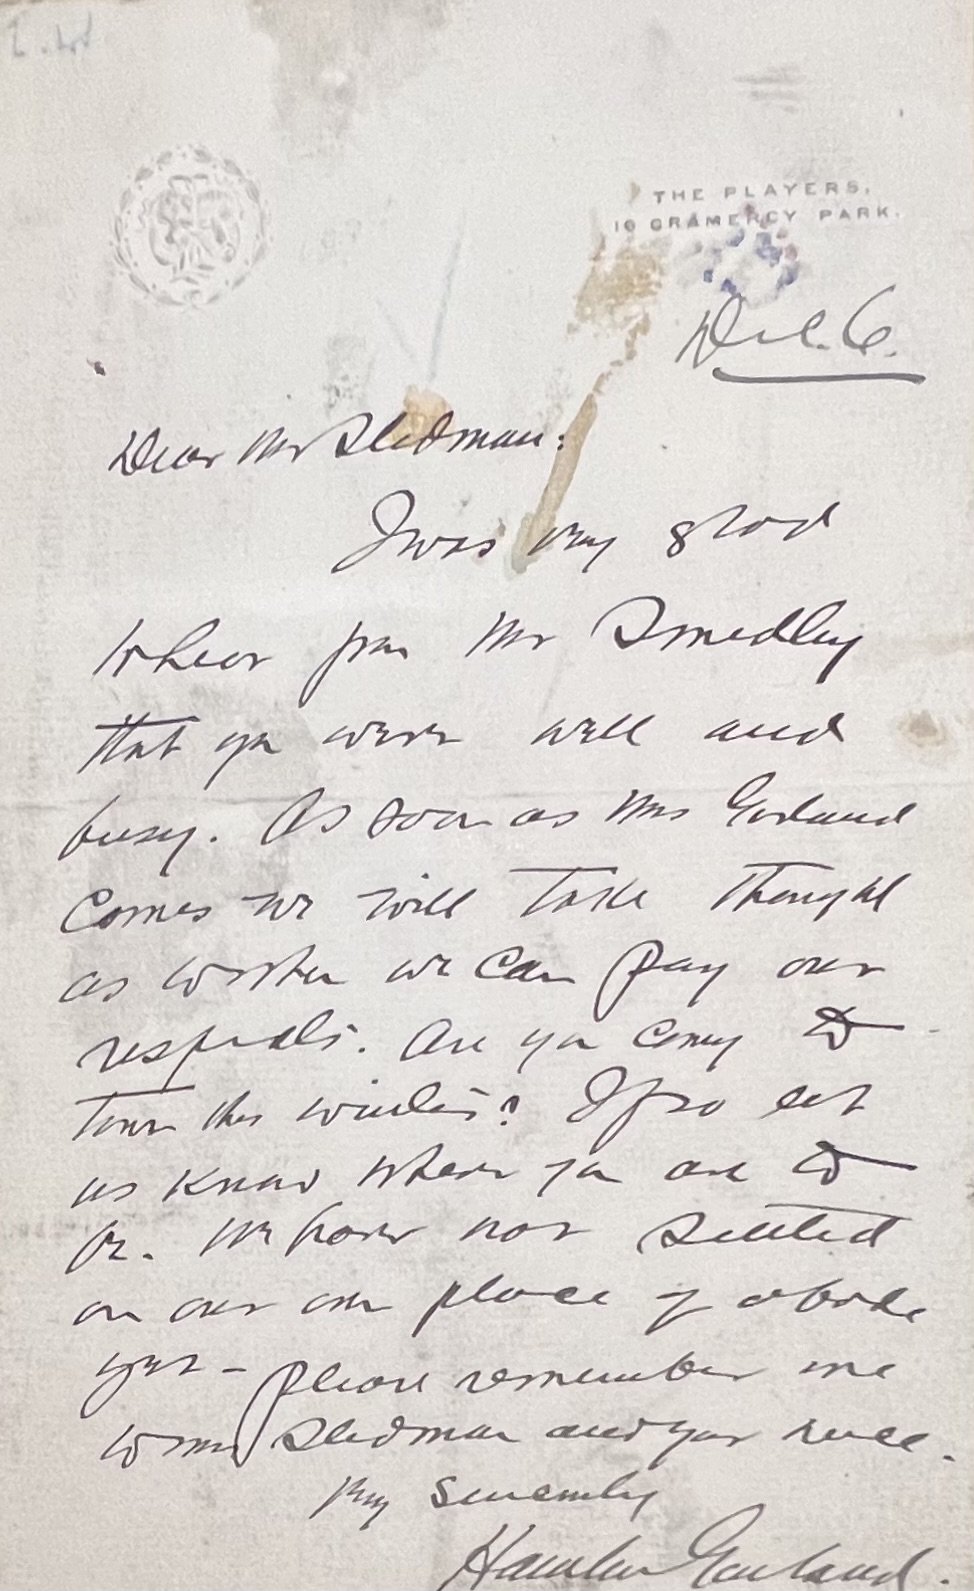 THE PLAYERS,
16 GRAMERCY PARK.
Dec. 6.
Dear Mr Stedman:
I was very glad
to hear from Mr Smedley
that you were well and
busy. As soon as Mrs Garland
comes we will take thought
as to when we can pay our
respects. Are you coming to
town this winter? If so let
us know where you are to
be. We have not settled
on our own place of abode
yet - please remember me
to Mrs Stedman and your niece.
Very Sincerely
Hamlin Garland.